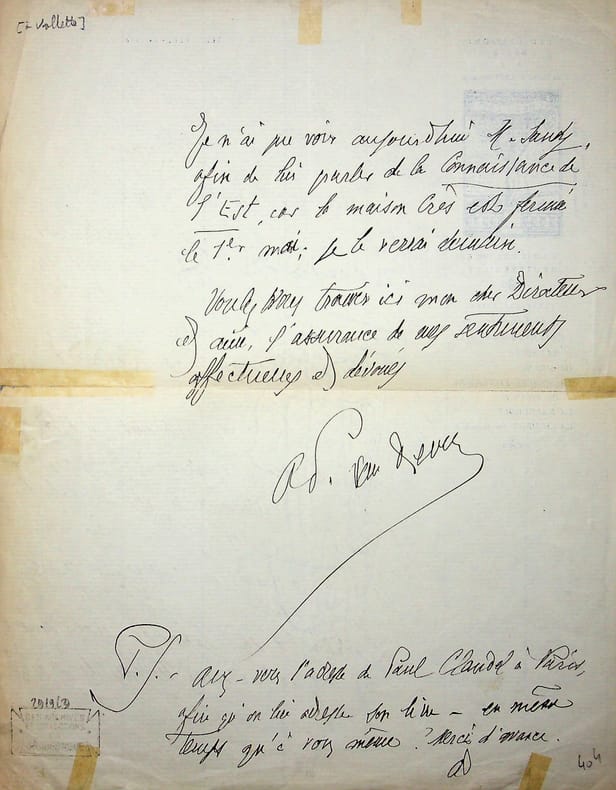 [à Vallette]
Je n'ai pu voir aujourd'hui M.
afin de lui parler de la Connaissance de
l'Est, car la maison Crès est fermée
le 1er mai; je le verrai demain.
Voulez vous trouver ici mon cher Directeur
et ami, l'assurance de mes sentiments
affectueux et dévoués
Ad. van Bever
P.S. - Avez-vous l'adresse de Paul Claudel à Paris,
afin qu'on lui adresse son livre - en même
temps qu'à vous même? Merci d'avance.
404